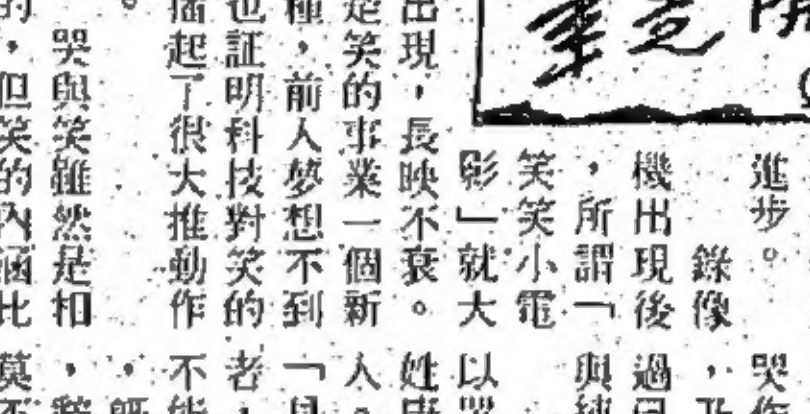 進步。
錄像
機出現後
，所謂「
笑笑小電
影」就大
出現，長映不衰。
是笑的事業一個新
種，前人夢想不到
也証明科技對笑的
播起了很大推動作
。
哭與笑雖然是相
的，但笑的內涵比
哭作
，
過
與
以
姓
人。
「
者，
不能
，
，
莫不